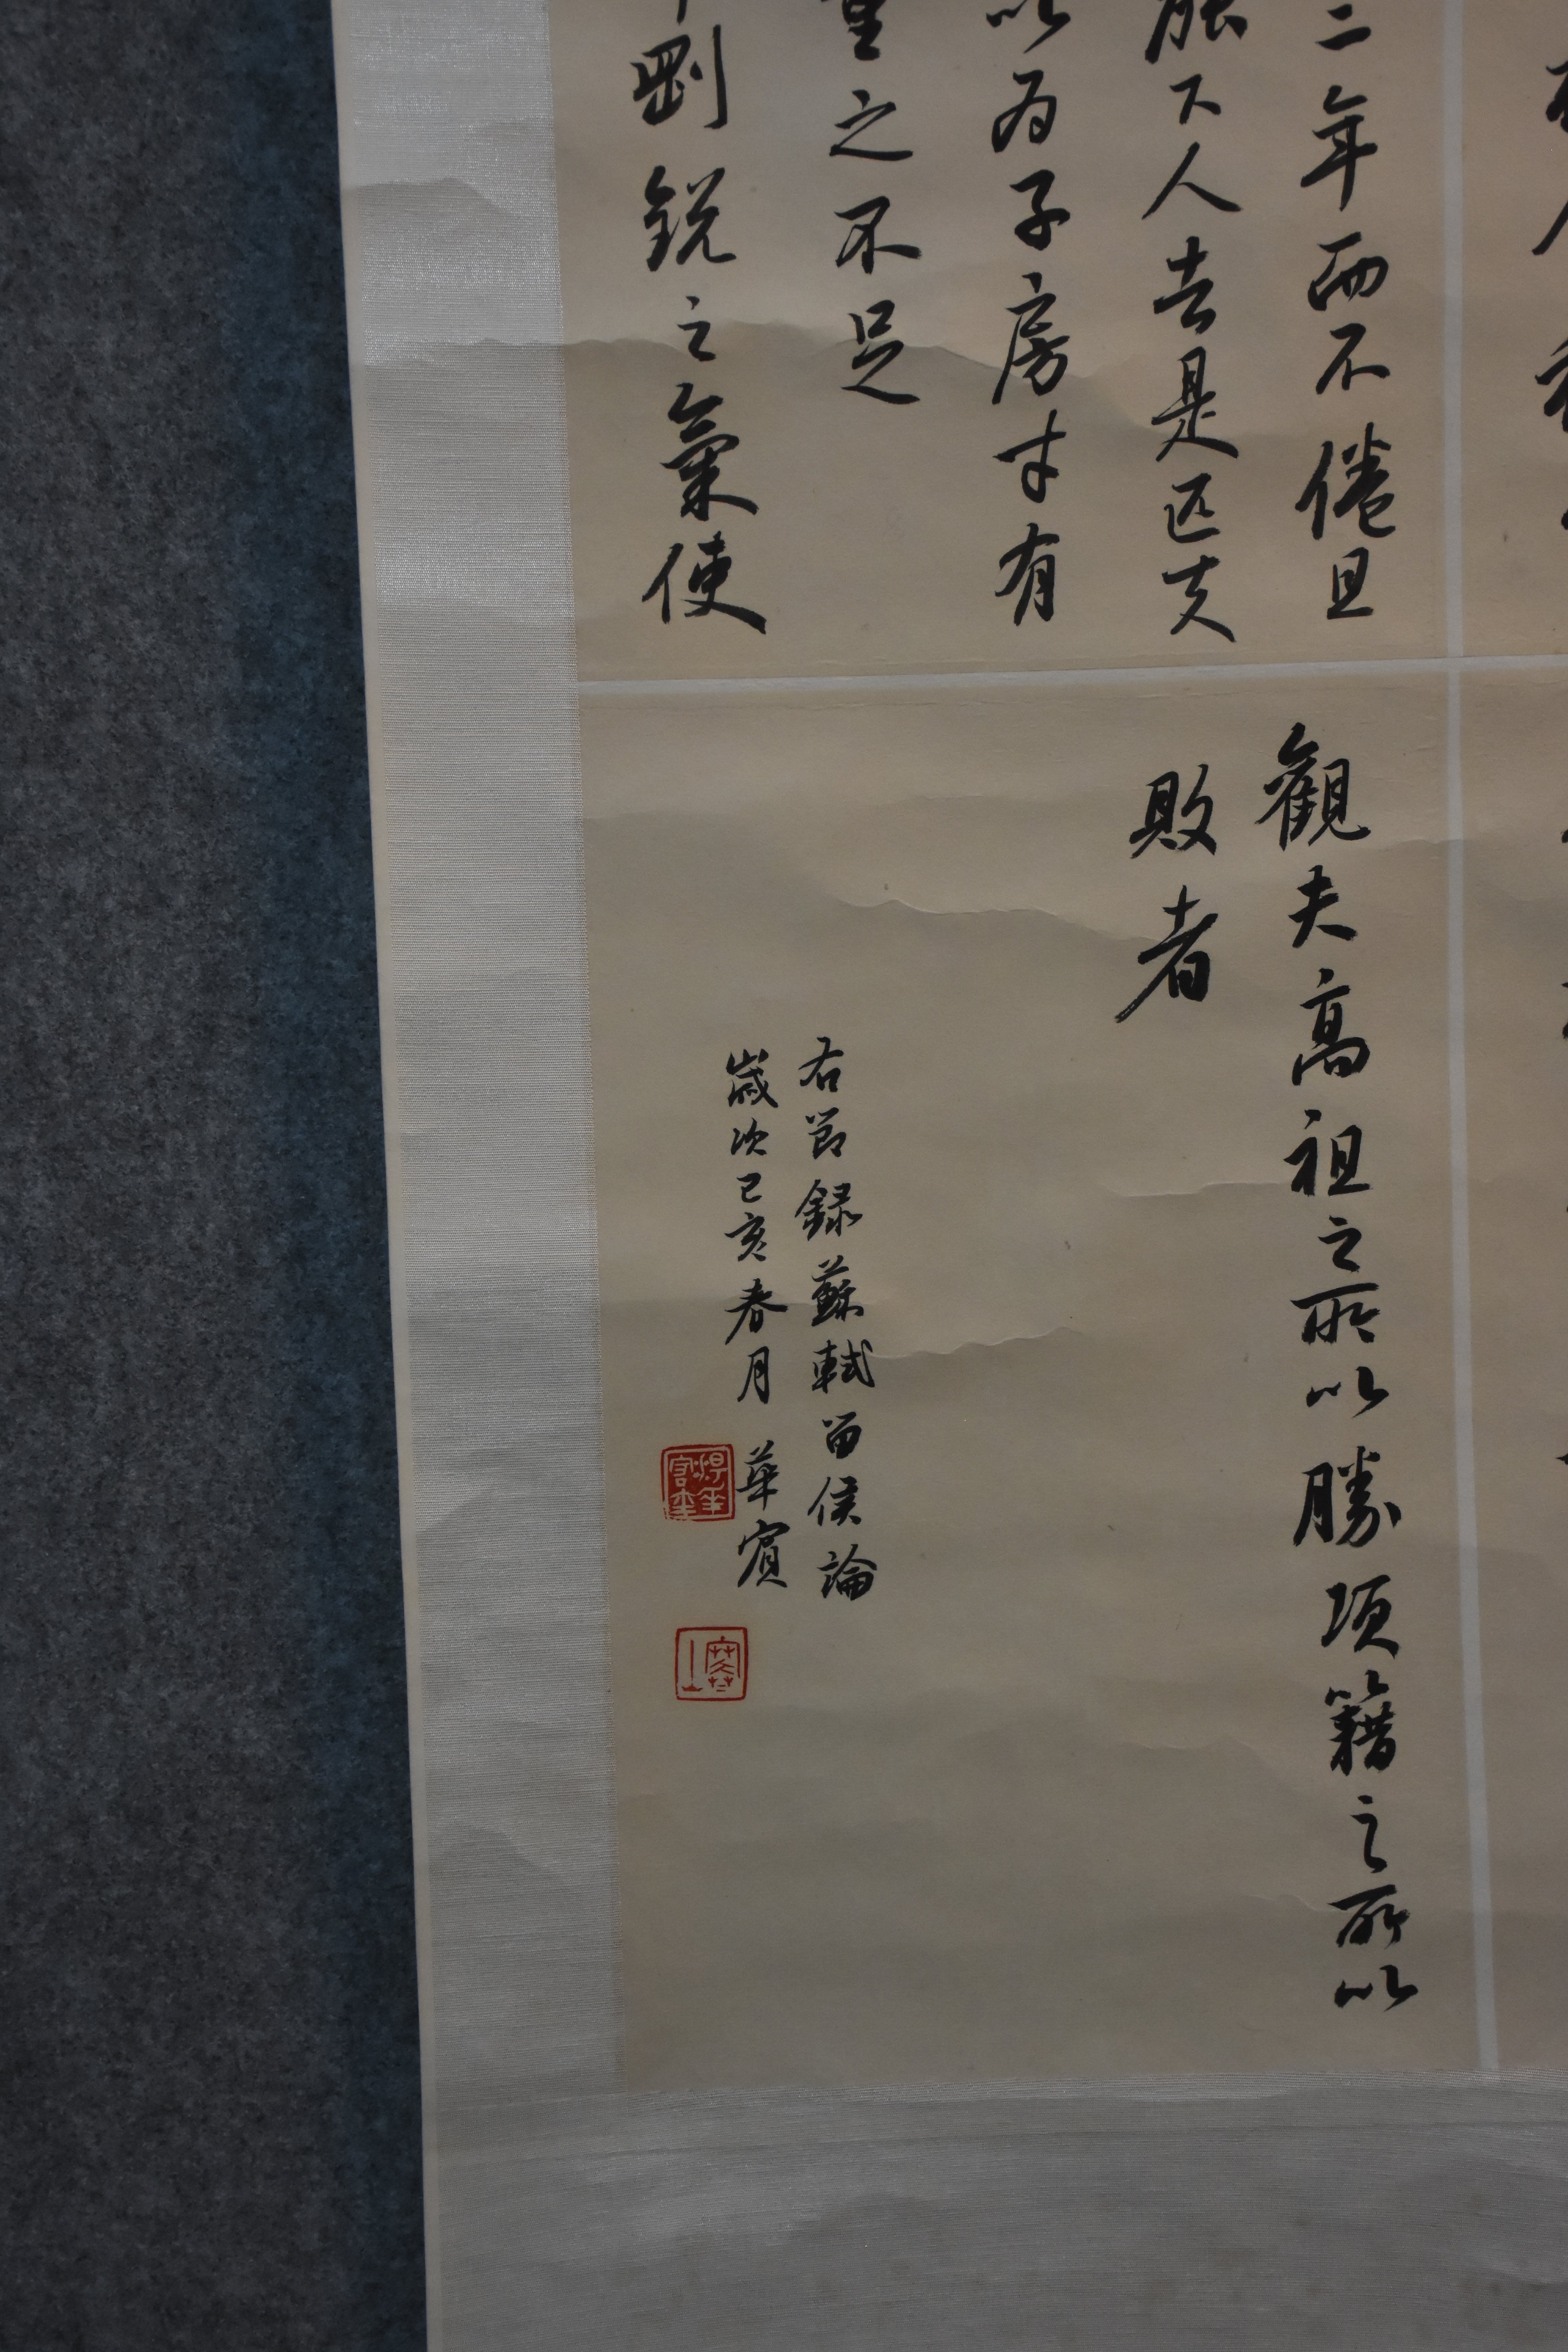 二年而不倦且
下人去是匹夫
以為子房才有
之不足
剛銳之氣使
觀夫高祖之所以勝項籍之所以
敗者
右節錄蘇軾留侯論
歲次己亥春月 華賓